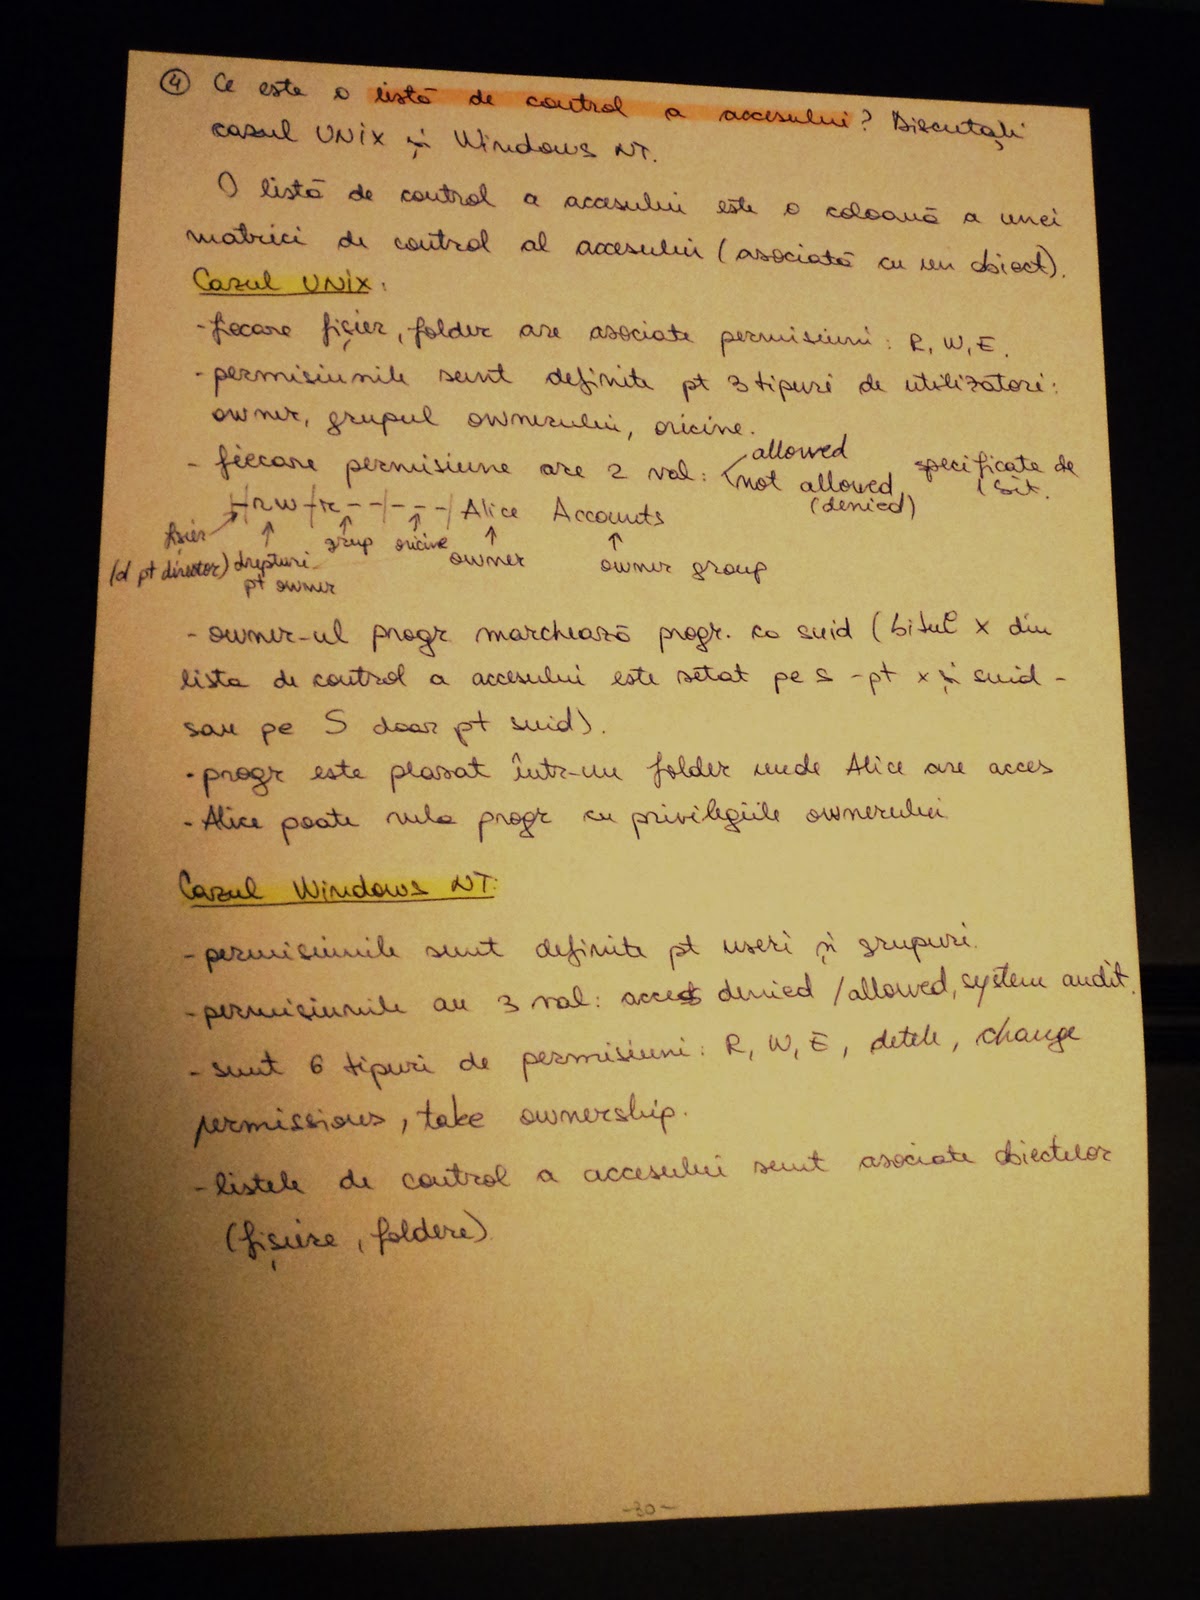 ④ Ce este o listă de control a accesului? Discutați
cazul UNIX și Windows NT.
O listă de control a accesului este o coloană a unei
matrici de control al accesului (asociată cu un obiect).
Cazul UNIX:
- fiecare fișier, folder are asociate permisiuni: R, W, E.
- permisiunile sunt definite pt 3 tipuri de utilizatori:
owner, grupul ownerului, oricine.
- fiecare permisiune are 2 val: allowed
not allowed (denied) specificate de 1 bit.
|-|rw-|r--|---| Alice Accounts
fișier (d pt director)
drepturi pt owner
grup
oricine
owner
owner group
- owner-ul progr marchează progr. ca suid (bitul x din
lista de control a accesului este setat pe s - pt x și suid -
sau pe S doar pt suid).
- progr este plasat într-un folder unde Alice are acces
- Alice poate rula progr cu privilegiile ownerului
Cazul Windows NT:
- permisiunile sunt definite pt useri și grupuri.
- permisiunile au 3 val: access denied / allowed, system audit.
- sunt 6 tipuri de permisiuni: R, W, E, detele, change
permissions, take ownership.
- listele de control a accesului sunt asociate obiectelor
(fișiere, foldere)
-30-